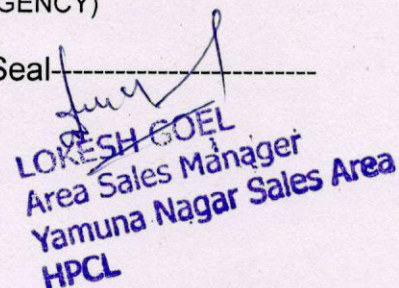 GENCY)
Seal-----------------------
LOKESH GOEL
Area Sales Manager
Yamuna Nagar Sales Area
HPCL